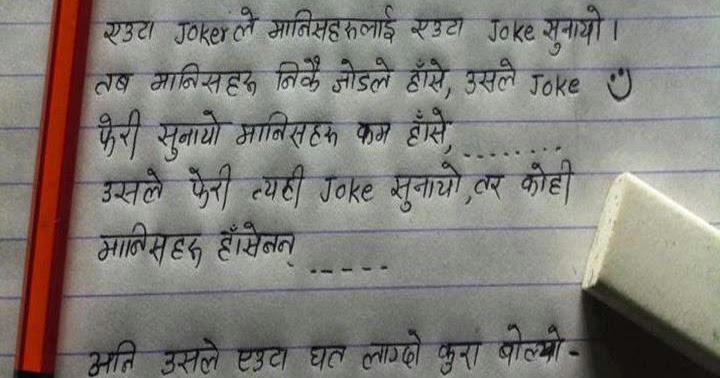 एउटा Jokerले मानिसहरुलाई एउटा Joke सुनायो।
तब मानिसहरु निकै जोडले हाँसे, उसले Joke
फेरी सुनायो मानिसहरु कम हाँसे, ........
उसले फेरी त्यही Joke सुनायो, तर कोही
मानिसहरु हाँसेनन् -----
अनि उसले एउटा घत लाग्दो कुरा बोल्यो -